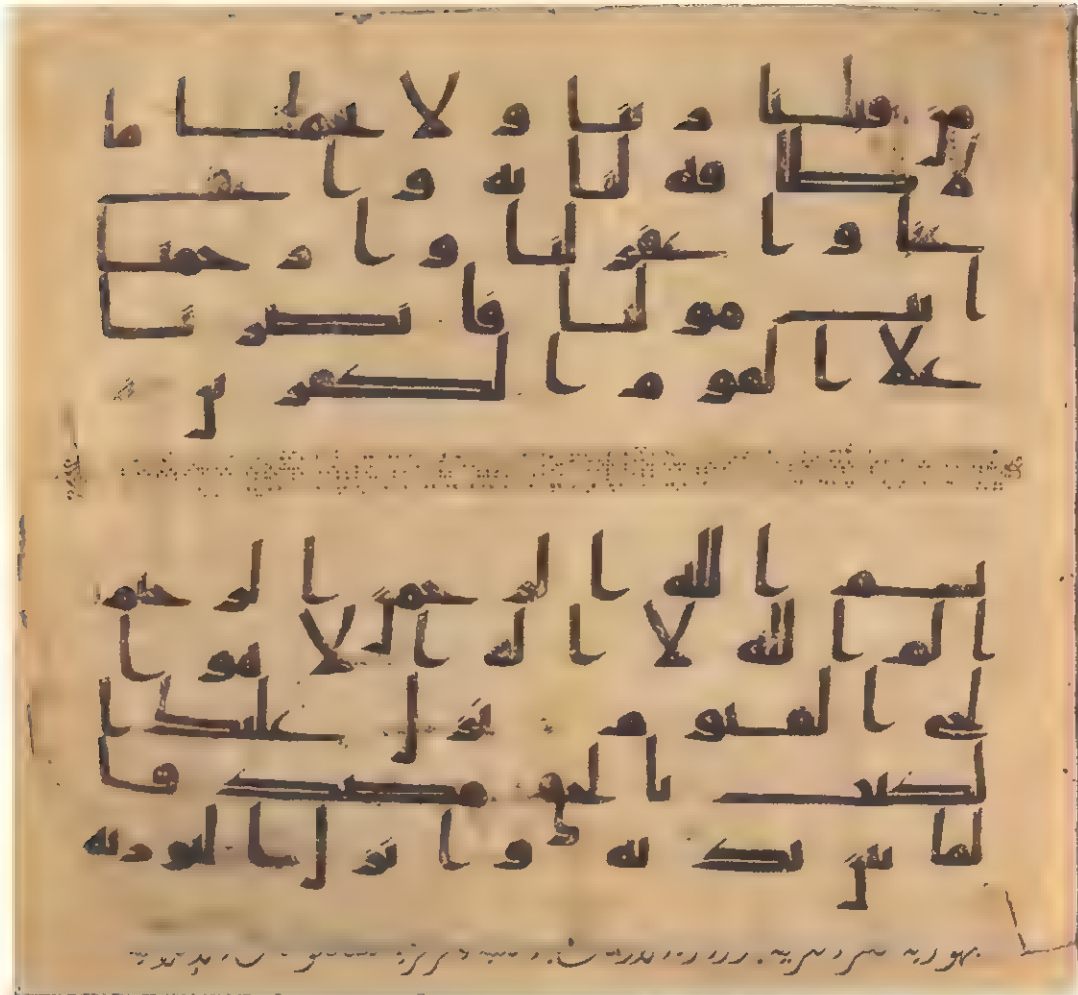 من قبلنا ربنا ولا تحملنا ما
لا طاقة لنا به واعف
عنا واغفر لنا وارحمنا
انت مولينا فانصرنا
على القوم الكفرين
بسم الله الرحمن الرحيم
الم الله لا اله الا هو ا
لحي القيوم نزل عليك ا
لكتب بالحق مصدقا
لما بين يديه وانزل التوريه